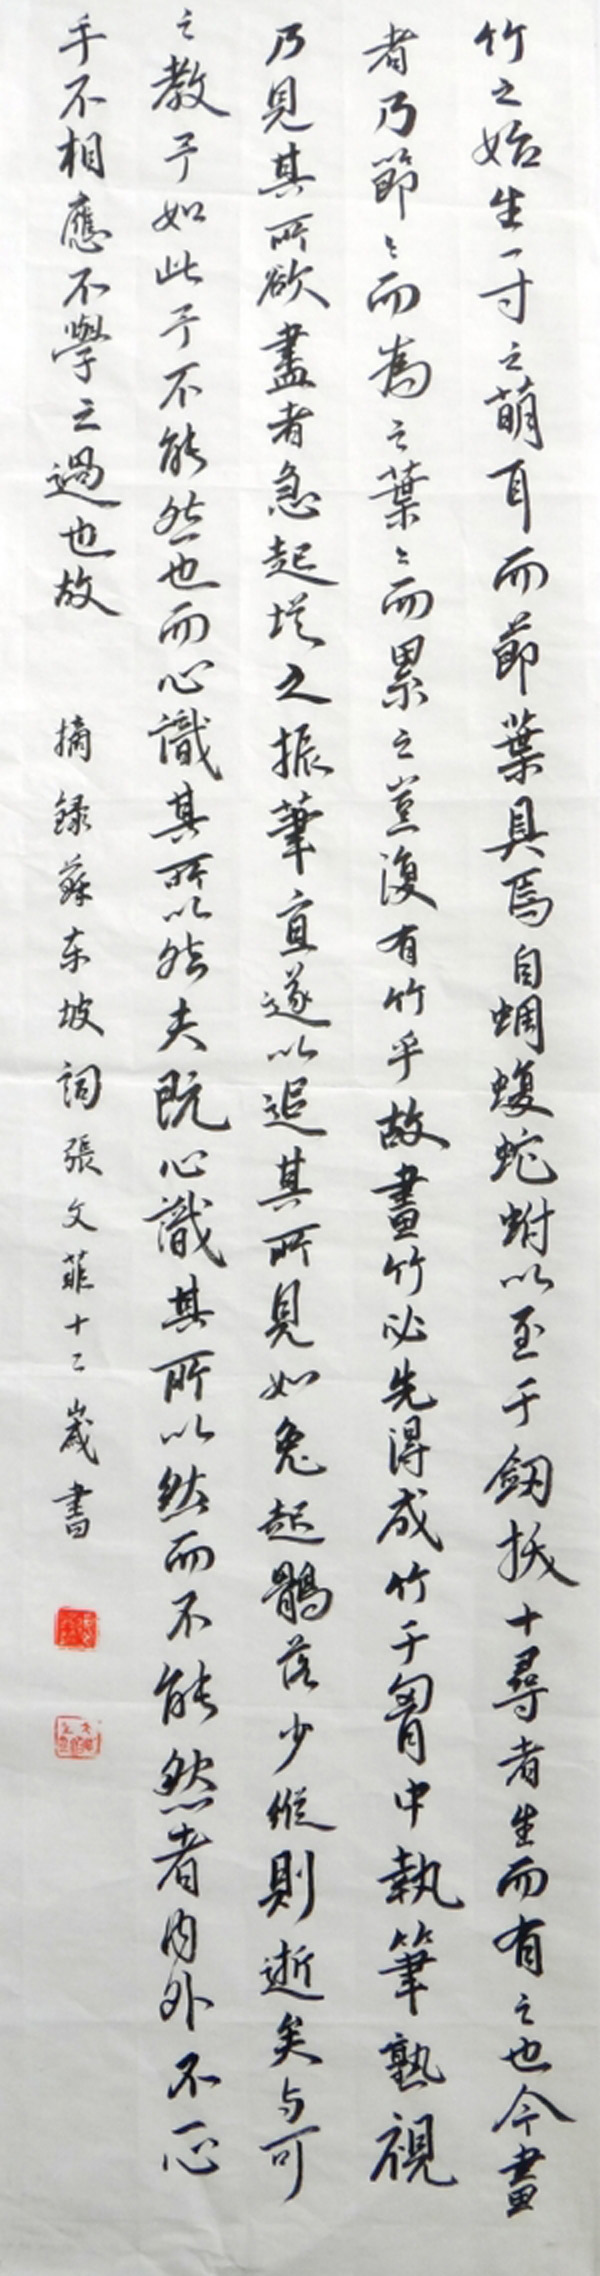 竹之始生一寸之萌耳而節葉具焉自蜩蝮蛇蚹以至于劍拔十尋者生而有之也今畫
者乃節〻而為之葉〻而累之豈復有竹乎故畫竹必先得成竹于胷中執筆熟視
乃見其所欲畫者急起從之振筆直遂以追其所見如兔起鶻落少縱則逝矣与可
之教予如此予不能然也而心識其所以然夫既心識其所以然而不能然者內外不一心
手不相應不學之過也故
摘録蘇东坡詞張文菲十二歲書